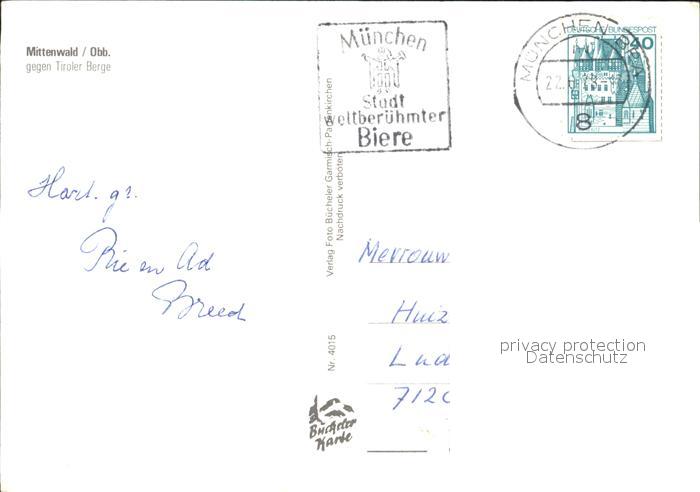 Mittenwald / Obb.
gegen Tiroler Berge
München
Stadt
weltberühmter
Biere
MÜNCHEN
22.
8
DEUTSCHE BUNDESPOST
40
Hart. gr.
Rie en Ad
Breed
Verlag Foto Bücheler Garmisch-Partenkirchen
Nachdruck verboten
Nr. 4015
Bücheler
Karte
Mevrouw
Huiz
Lud
712
privacy protection
Datenschutz